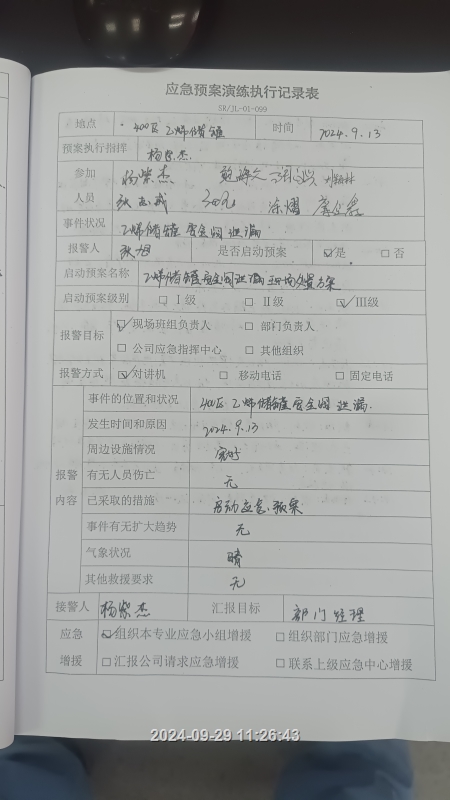 应急预案演练执行记录表
SR/JL-01-099
地点 400区乙烯储罐 时间 2024.9.13
预案执行指挥 杨崇杰
参加 杨崇杰
人员
事件状况 乙烯储罐安全阀泄漏
报警人 是否启动预案 ☑是 □否
启动预案名称 乙烯储罐安全阀泄漏现场处置方案
启动预案级别 □Ⅰ级 □Ⅱ级 ☑Ⅲ级
报警目标 ☑现场班组负责人 □部门负责人
□公司应急指挥中心 □其他组织
报警方式 ☑对讲机 □移动电话 □固定电话
事件的位置和状况 400区乙烯储罐安全阀泄漏
发生时间和原因 2024.9.13
周边设施情况 完好
报警 有无人员伤亡 无
内容 已采取的措施 启动应急预案
事件有无扩大趋势 无
气象状况 晴
其他救援要求 无
接警人 杨崇杰 汇报目标 部门经理
应急 ☑组织本专业应急小组增援 □组织部门应急增援
增援 □汇报公司请求应急增援 □联系上级应急中心增援
2024-09-29 11:26:43